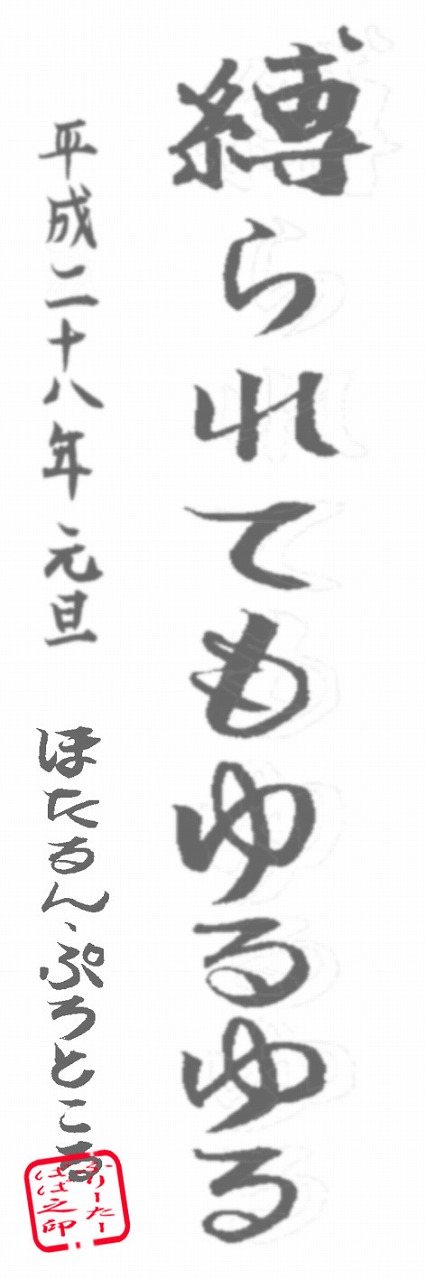 縛られてもゆるゆる
平成二十八年 元旦
ほたるん、ぷろとこる
ふりーたー
はば之印